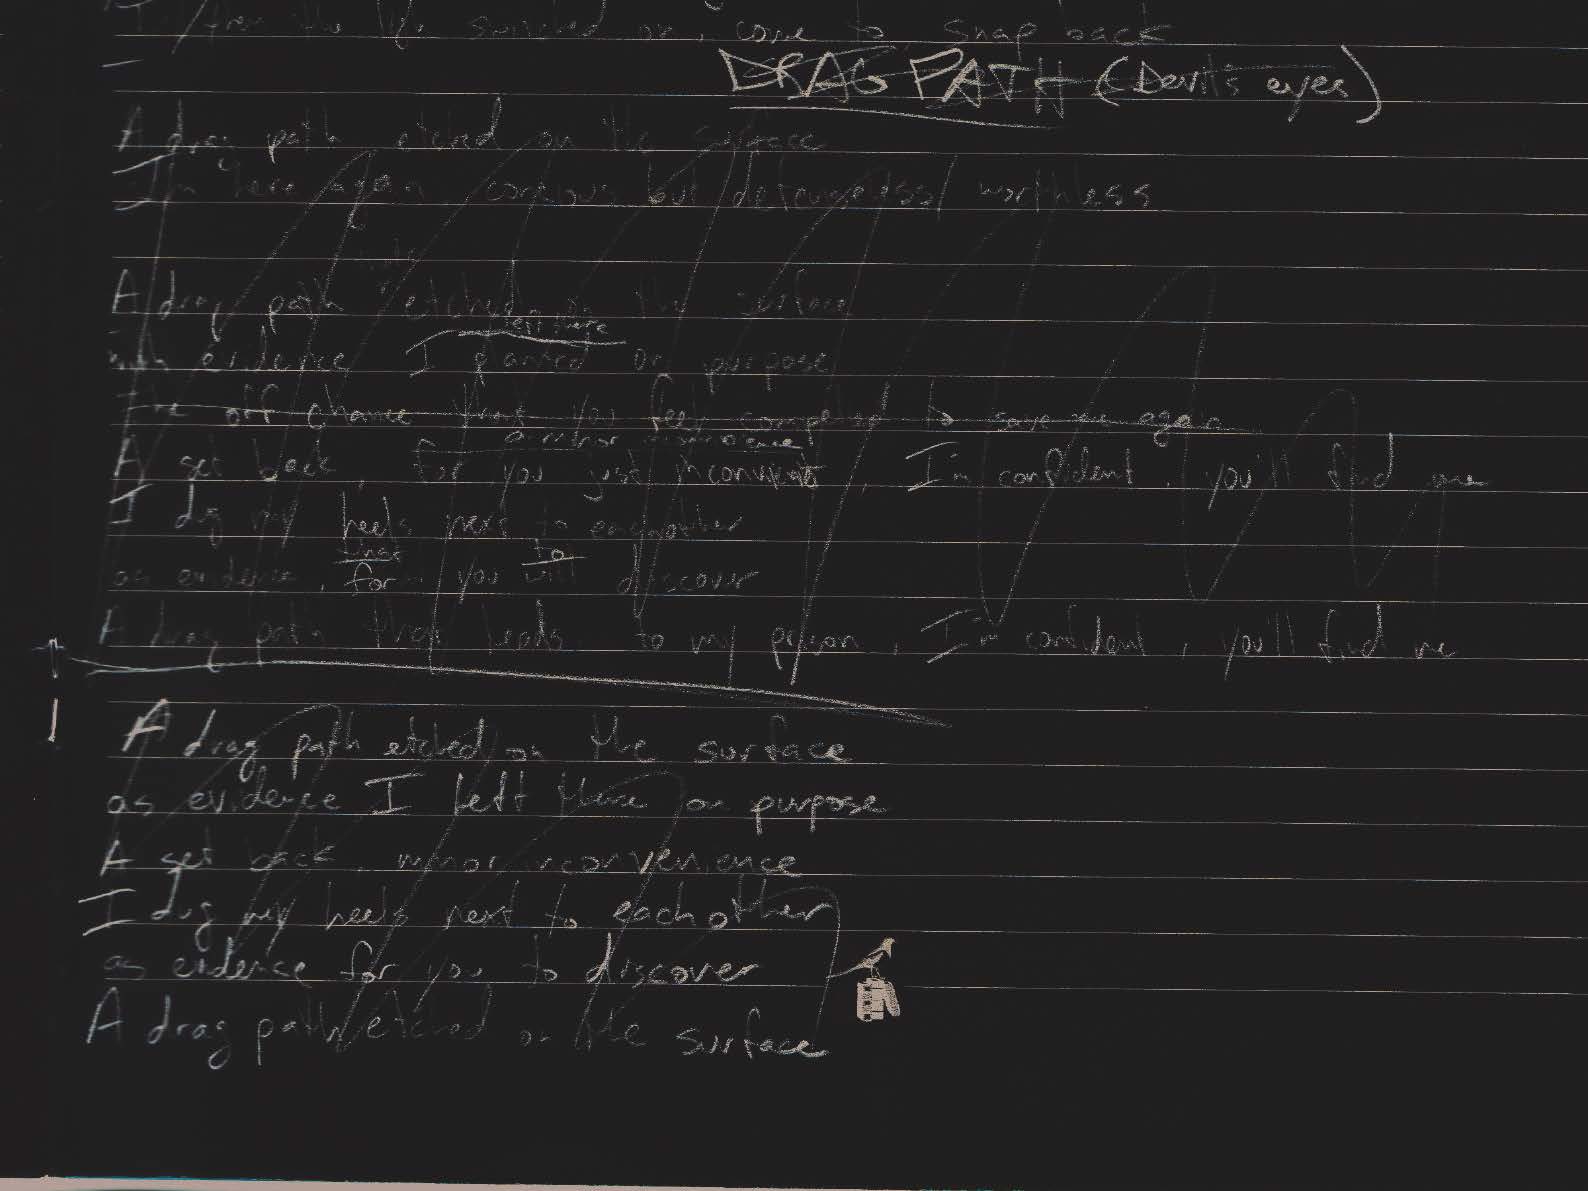 come to snap back
DRAG PATH (Devil's eyes)
A drag path etched on the surface
I'm here again conscious but defenseless/ worthless
A drag path etched on the surface
left there
evidence I planted on purpose
The off chance that you feel compelled to save me again
a minor
A set back, for you just inconvenient, I'm confident, you'll find me
I dug my heels next to eachother
that to
as evidence, for you will discover
A drag path that leads to my prison, I'm confident, you'll find me
A drag path etched on the surface
as evidence I left there on purpose
A set back, minor inconvenience
I dug my heels next to each other
as evidence for you to discover
A drag path etched on the surface